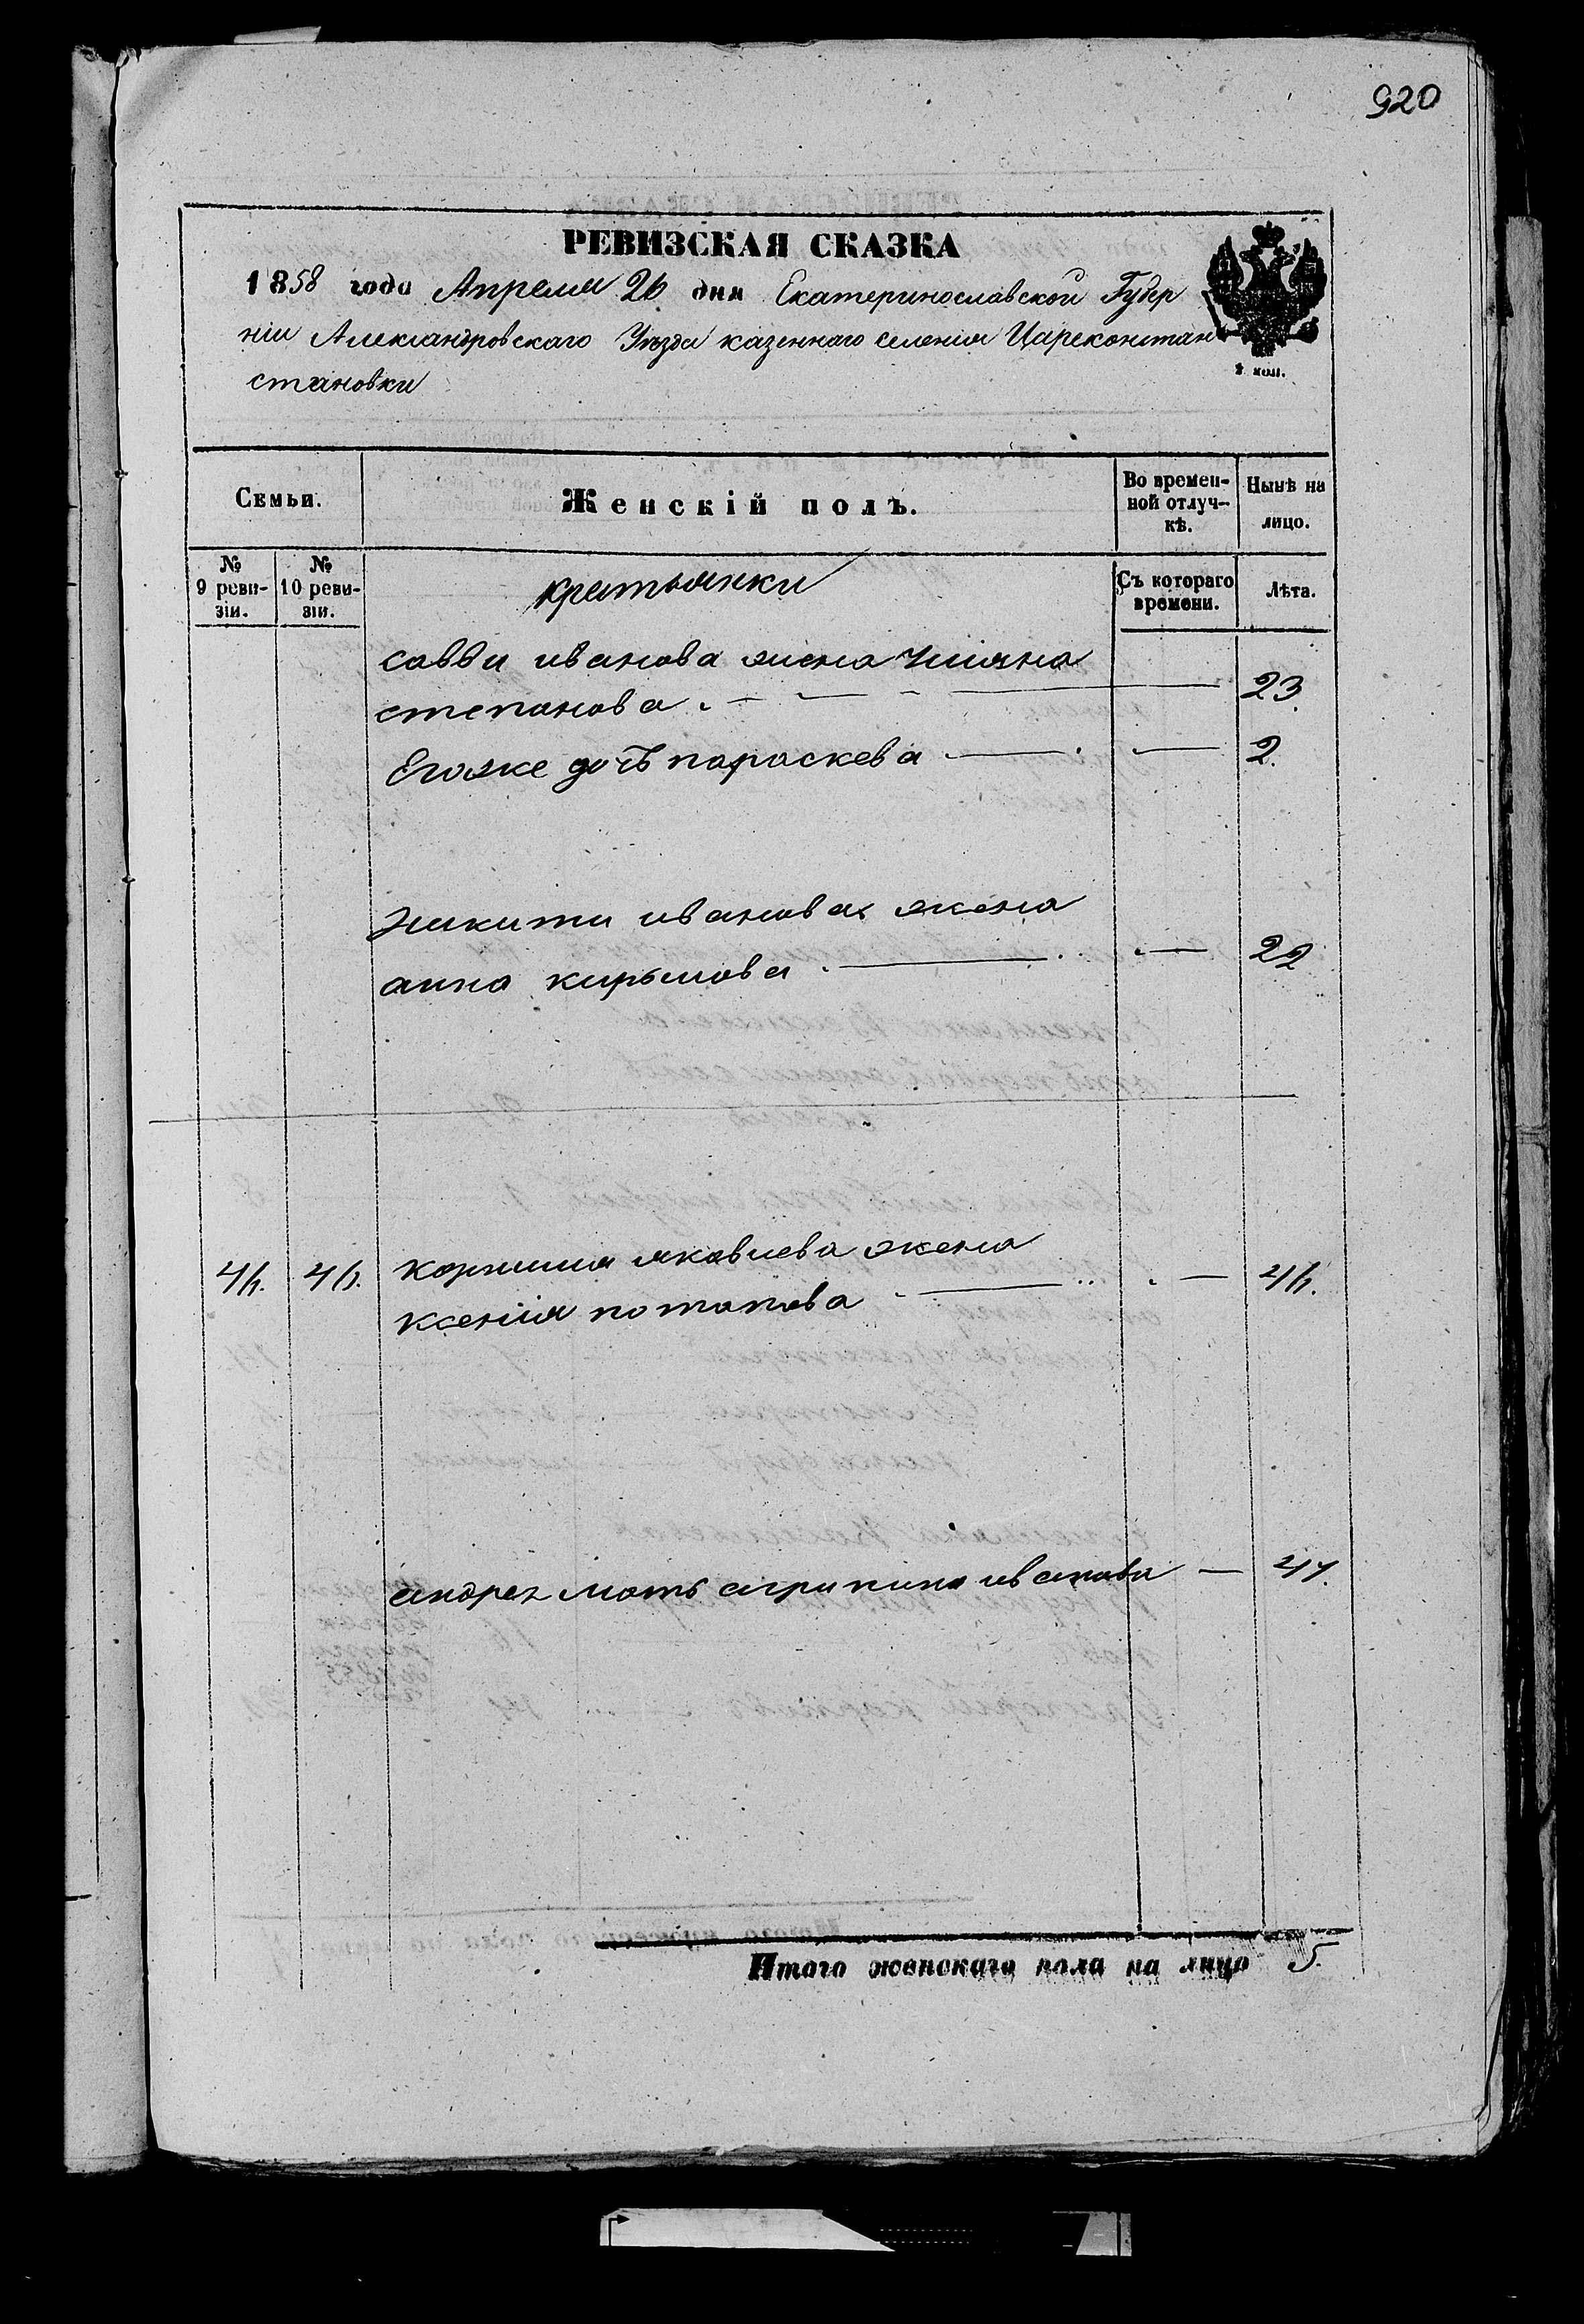 920
РЕВИЗСКАЯ СКАЗКА
1858 года Апреля 26 дня Екатеринославской Губер
ніи Александровскаго Уѣзда казеннаго селенія Цареконстан
становки
2 коп.
Семьи.
Женскій полъ.
Во времен-
ной отлуч-
кѣ.
Нынѣ на
лицо.
№
9 реви-
зіи.
№
10 реви-
зіи.
крестьянки
Съ котораго
времени.
Лѣта.
савви иванова жена
степанова 23.
Егоже дочъ параскева 2.
никити иванова жена
анна кирылова 22
яковлева жена
ксенія потапова
андрея мать агрипина иванова
Итого женскаго пола на лицо 5.